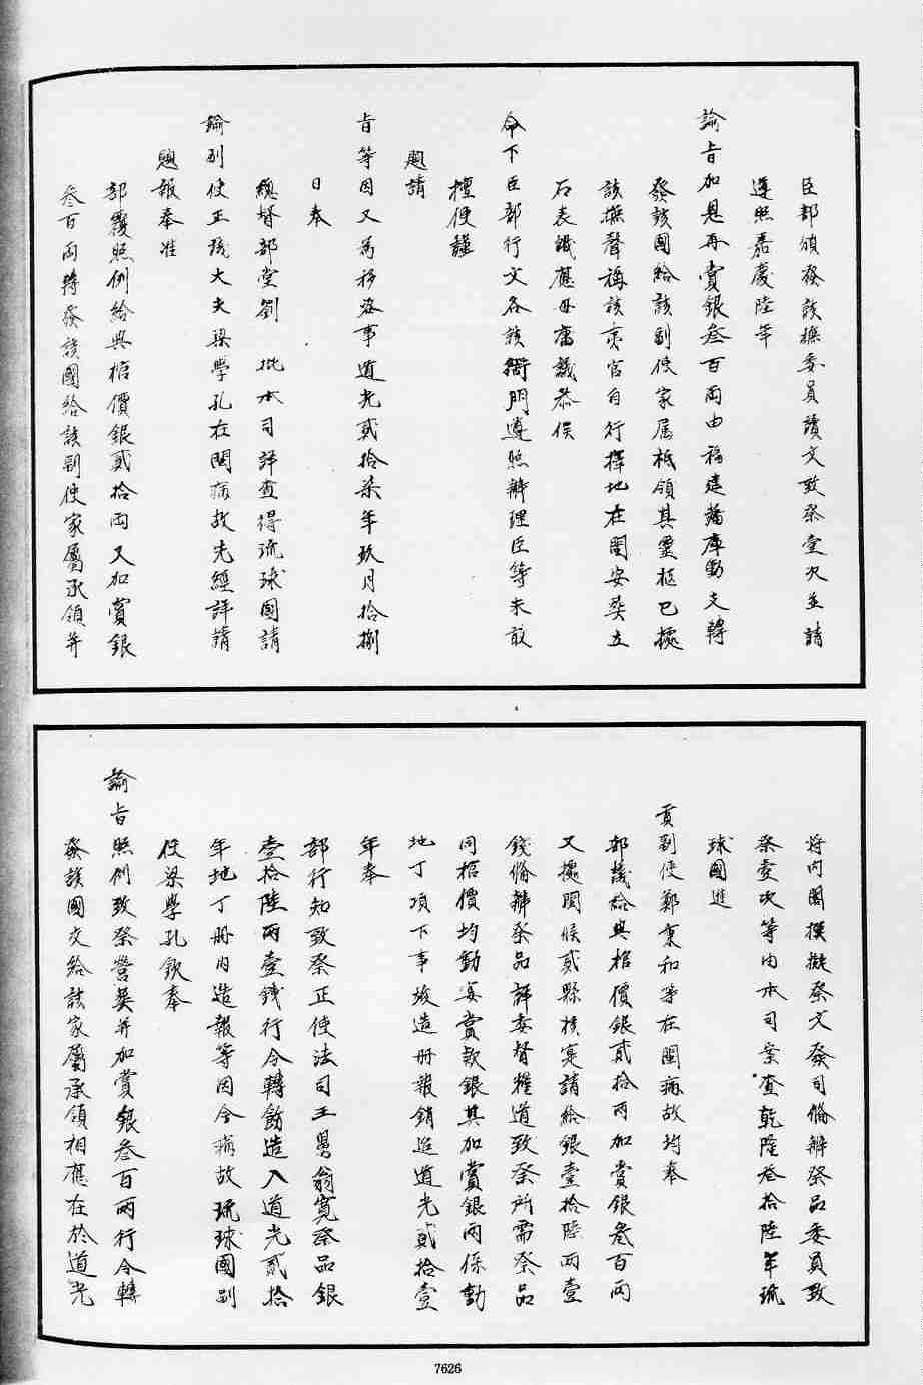 臣部頒發該撫委員讀文致祭壹次並請
遵照嘉慶陸年
諭旨加恩再賞銀叁百兩由福建藩庫動支轉
發該國給該副使家屬祗領其靈柩已據
該撫聲稱該夷官自行擇地在閩安葬立
石表識應毋庸議恭候
命下臣部行文各該衙門遵照辦理臣等未敢
擅便謹
題請
旨等因又為移咨事道光貳拾柒年玖月拾捌
日奉
總督部堂劉 批本司詳查得琉球國請
諭副使正議大夫梁學孔在閩病故先經詳請
題報奉准
部覆照例給與棺價銀貳拾兩又加賞銀
叁百兩轉發該國給該副使家屬承領并
將內閣撰擬祭文發司俻辦祭品委員致
祭壹次等由本司案查乾隆叁拾陸年琉
球國進
貢副使鄭秉和等在閩病故均奉
部議給與棺價銀貳拾兩加賞銀叁百兩
又據閩候貳縣核定請給銀壹拾陸兩壹
錢俻辦祭品詳委督糧道致祭所需祭品
同棺價均動宴賞款銀其加賞銀兩係動
地丁項下事竣造册報銷迨道光貳拾壹
年奉
部行知致祭正使法司王舅翁寬祭品銀
壹拾陸兩壹錢行令轉飭造入道光貳拾
年地丁册內造報等因今病故琉球國副
使梁學孔欽奉
諭旨照例致祭營葬并加賞銀叁百兩行令轉
發該國交給該家屬承領相應在於道光
7626